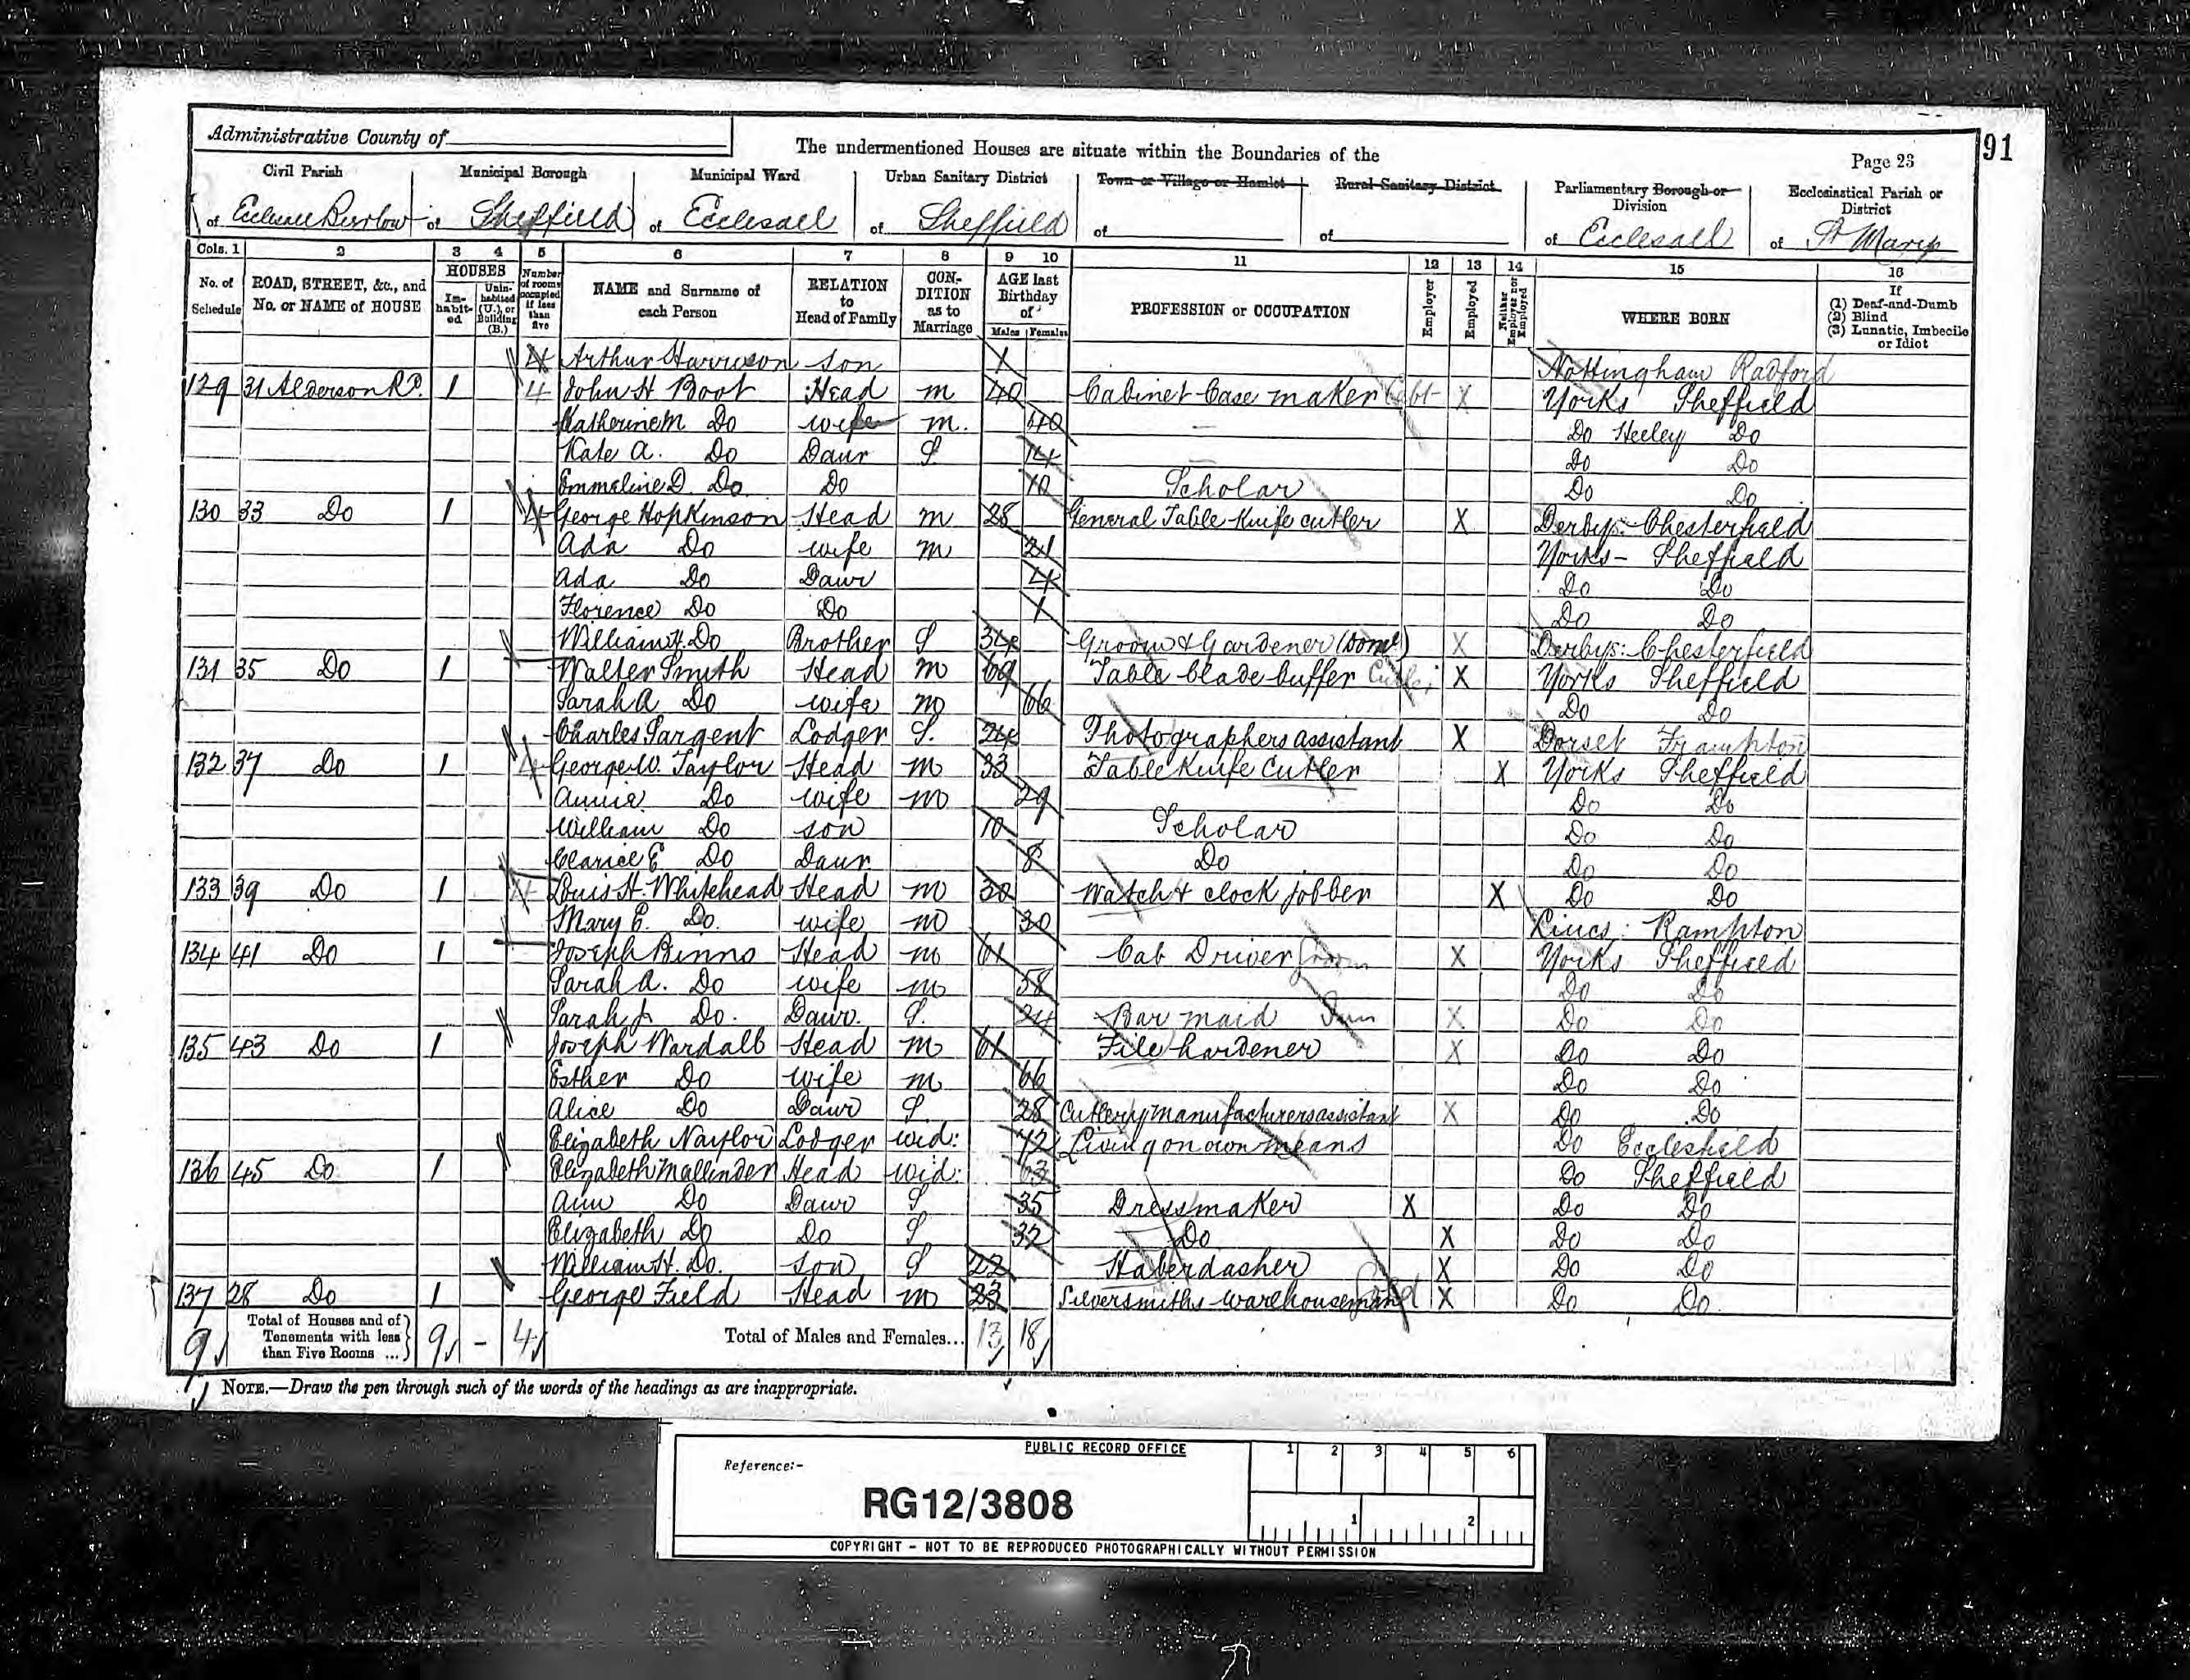 Administrative County of
The undermentioned Houses are situate within the Boundaries of the
Page 23
91
Civil Parish Municipal Borough Municipal Ward Urban Sanitary District Town or Village or Hamlet Rural Sanitary District Parliamentary Borough or Division Ecclesiastical Parish or District
of Ecclesall Bierlow of Sheffield of Ecclesall of Sheffield of of of Ecclesall of St Marys
Cols. 1 2 3 4 5 6 7 8 9 10 11 12 13 14 15 16
No. of Schedule ROAD, STREET, &c., and No. or NAME of HOUSE HOUSES Inhabited Uninhabited (U.), or Building (B.) Number of rooms occupied if less than five NAME and Surname of each Person RELATION to Head of Family CONDITION as to Marriage AGE last Birthday of Males Females PROFESSION or OCCUPATION Employer Employed Neither Employer nor Employed WHERE BORN If (1) Deaf-and-Dumb (2) Blind (3) Lunatic, Imbecile or Idiot
Arthur Harrison son 1 Nottingham Radford
129 31 Alderson Rd. 1 4 John H Boot Head m 40 Cabinet Case maker X Yorks Sheffield
Katherine M Do wife m. 40 Do Heeley Do
Kate A. Do Daur S 14 Do Do
Emmeline D. Do Do 10 Scholar Do Do
130 33 Do 1 4 George Hopkinson Head m 28 General Table Knife cutler X Derbys: Chesterfield
Ada Do wife m 21 Yorks - Sheffield
Ada Do Daur 4 Do Do
Florence Do Do 1 Do Do
William H. Do Brother S 34 Groom & Gardener (Dome) X Derbys: Chesterfield
131 35 Do 1 Walter Smith Head m 69 Table blade buffer X Yorks Sheffield
Sarah A Do wife m 66 Do Do
Charles Sargent Lodger S. 24 Photographers assistant X Dorset Frampton
132 37 Do 1 4 George W. Taylor Head m 33 Table Knife Cutler X Yorks Sheffield
Annie Do wife m 29 Do Do
William Do son 10 Scholar Do Do
Clarice E Do Daur. 8 Do Do Do
133 39 Do 1 4 Louis H. Whitehead Head m 30 Watch & clock jobber X Do Do
Mary E. Do. wife m 30 Lincs: Rampton
134 41 Do 1 Joseph Binns Head m 61 Cab Driver Groom X Yorks Sheffield
Sarah A. Do wife m 58 Do Do
Sarah J. Do. Daur. S. 24 Bar maid Inn X Do Do
135 43 Do 1 Joseph Wardall Head m 61 File hardener X Do Do
Esther Do wife m 66 Do Do
Alice Do Daur S 28 Cutlery manufacturers assistant X Do Do
Elizabeth Naylor Lodger wid: 72 Living on own means Do Ecclesfield
136 45 Do 1 Elizabeth Mallinder Head wid: 63 Do Sheffield
Ann Do Daur S 35 Dressmaker X Do Do
Elizabeth Do Do S 32 Do X Do Do
William H. Do. son S 22 Haberdasher X Do Do
137 28 Do 1 George Field Head m 23 Silversmiths warehouseman X Do Do
9 Total of Houses and of Tenements with less than Five Rooms ... 9 - 4 Total of Males and Females... 13 18
NOTE.—Draw the pen through such of the words of the headings as are inappropriate.
PUBLIC RECORD OFFICE 1 2 3 4 5 6
Reference:-
RG12/3808
1 2
COPYRIGHT - NOT TO BE REPRODUCED PHOTOGRAPHICALLY WITHOUT PERMISSION